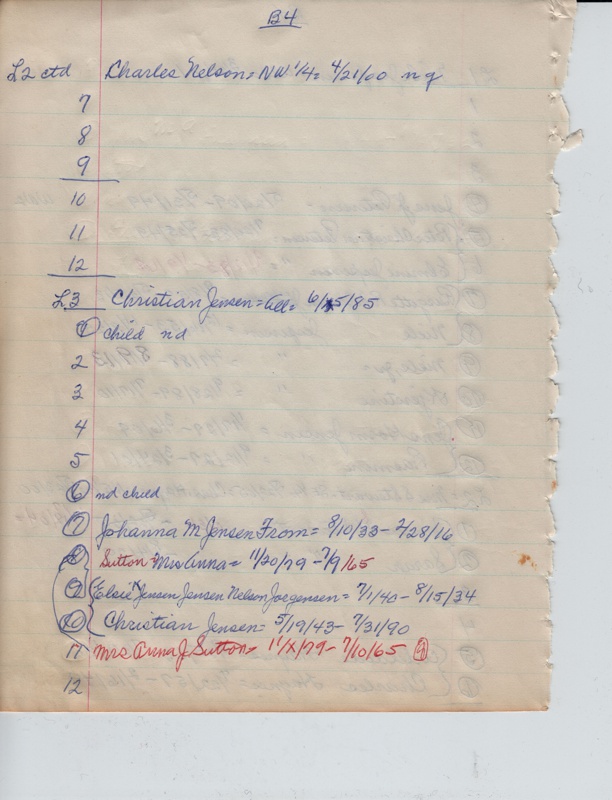 B4
L2 ctd Charles Nelson = NW 1/4 = 4/21/00 n g
7
8
9
10
11
12
L3 Christian Jensen = All = 6/15/85
1 child nd
2
3
4
5
6 nd child
7 Johanna M Jensen From = 8/10/33 - 2/28/16
8 Sutton = Mrs Anna = 11/20/79 - 7/9/65
9 Elsie Jensen Jensen Nelson Jorgensen = 7/1/40 - 8/15/34
10 Christian Jensen = 5/19/43 - 7/31/90
11 Mrs Anna J Sutton = 11/X/79 - 7/10/65 9
12